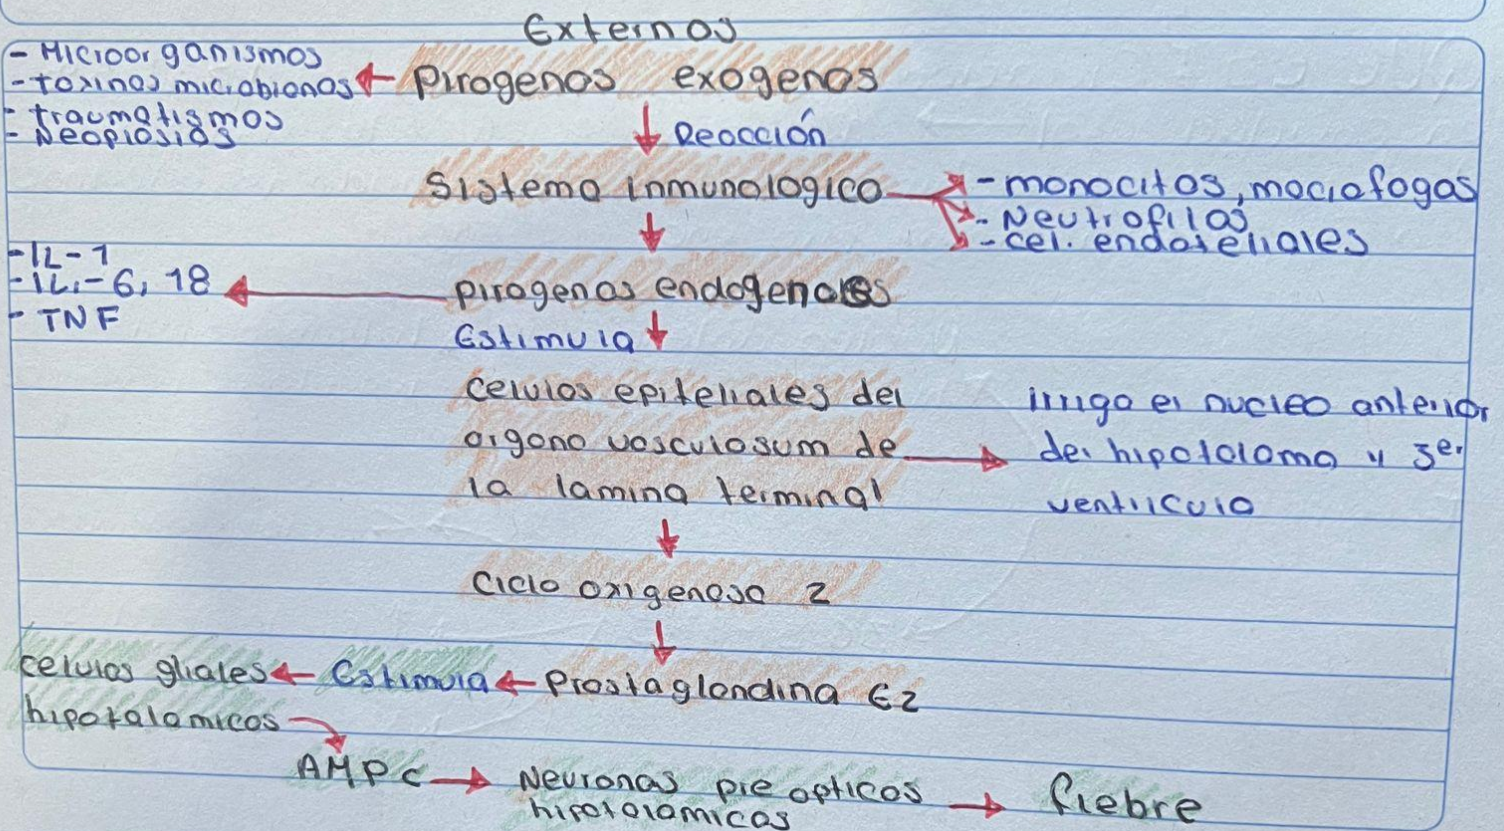 Externos
- Microorganismos
- toxinas microbianas
- traumatismos
- Neoplasias
Pirogenos exogenos
Reacción
Sistema inmunologico
- monocitos, macrofagas
- Neutrofilas
- cel. endoteliales
- IL-1
- IL-6, 18
- TNF
pirogenos endogenos
Estimula
celulas epiteliales del
organo vasculosum de
la lamina terminal
irriga el nucleo anterior
del hipotalamo y 3er
ventriculo
Ciclo oxigenasa 2
celulas gliales Estimula Prostaglandina E2
hipotalamicos
AMPc Neuronas pre opticas fiebre
hipotalamicas